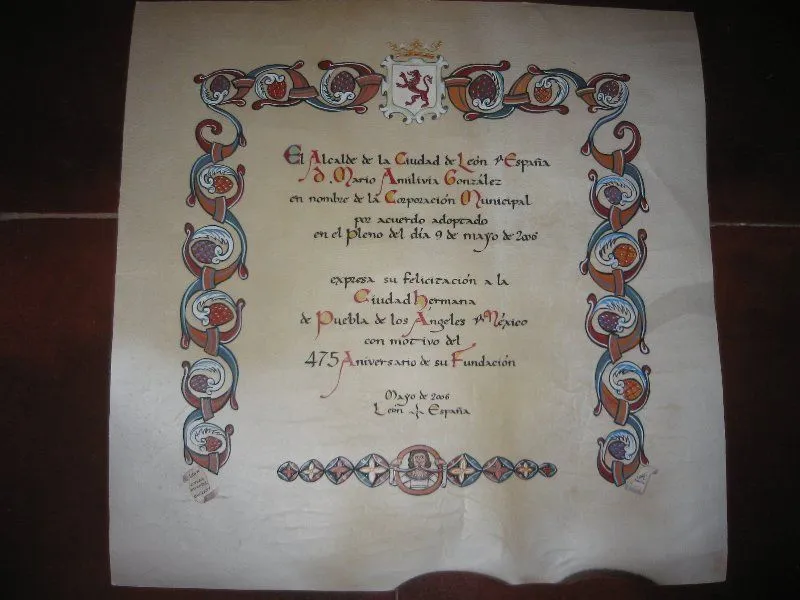 El Alcalde de la Ciudad de León España
D. Mario Amilivia González
en nombre de la Corporación Municipal
por acuerdo adoptado
en el Pleno del día 9 de mayo de 2006
expresa su felicitación a la
Ciudad Hermana
de Puebla de los Ángeles México
con motivo del
475 Aniversario de su Fundación
Mayo de 2006
León España